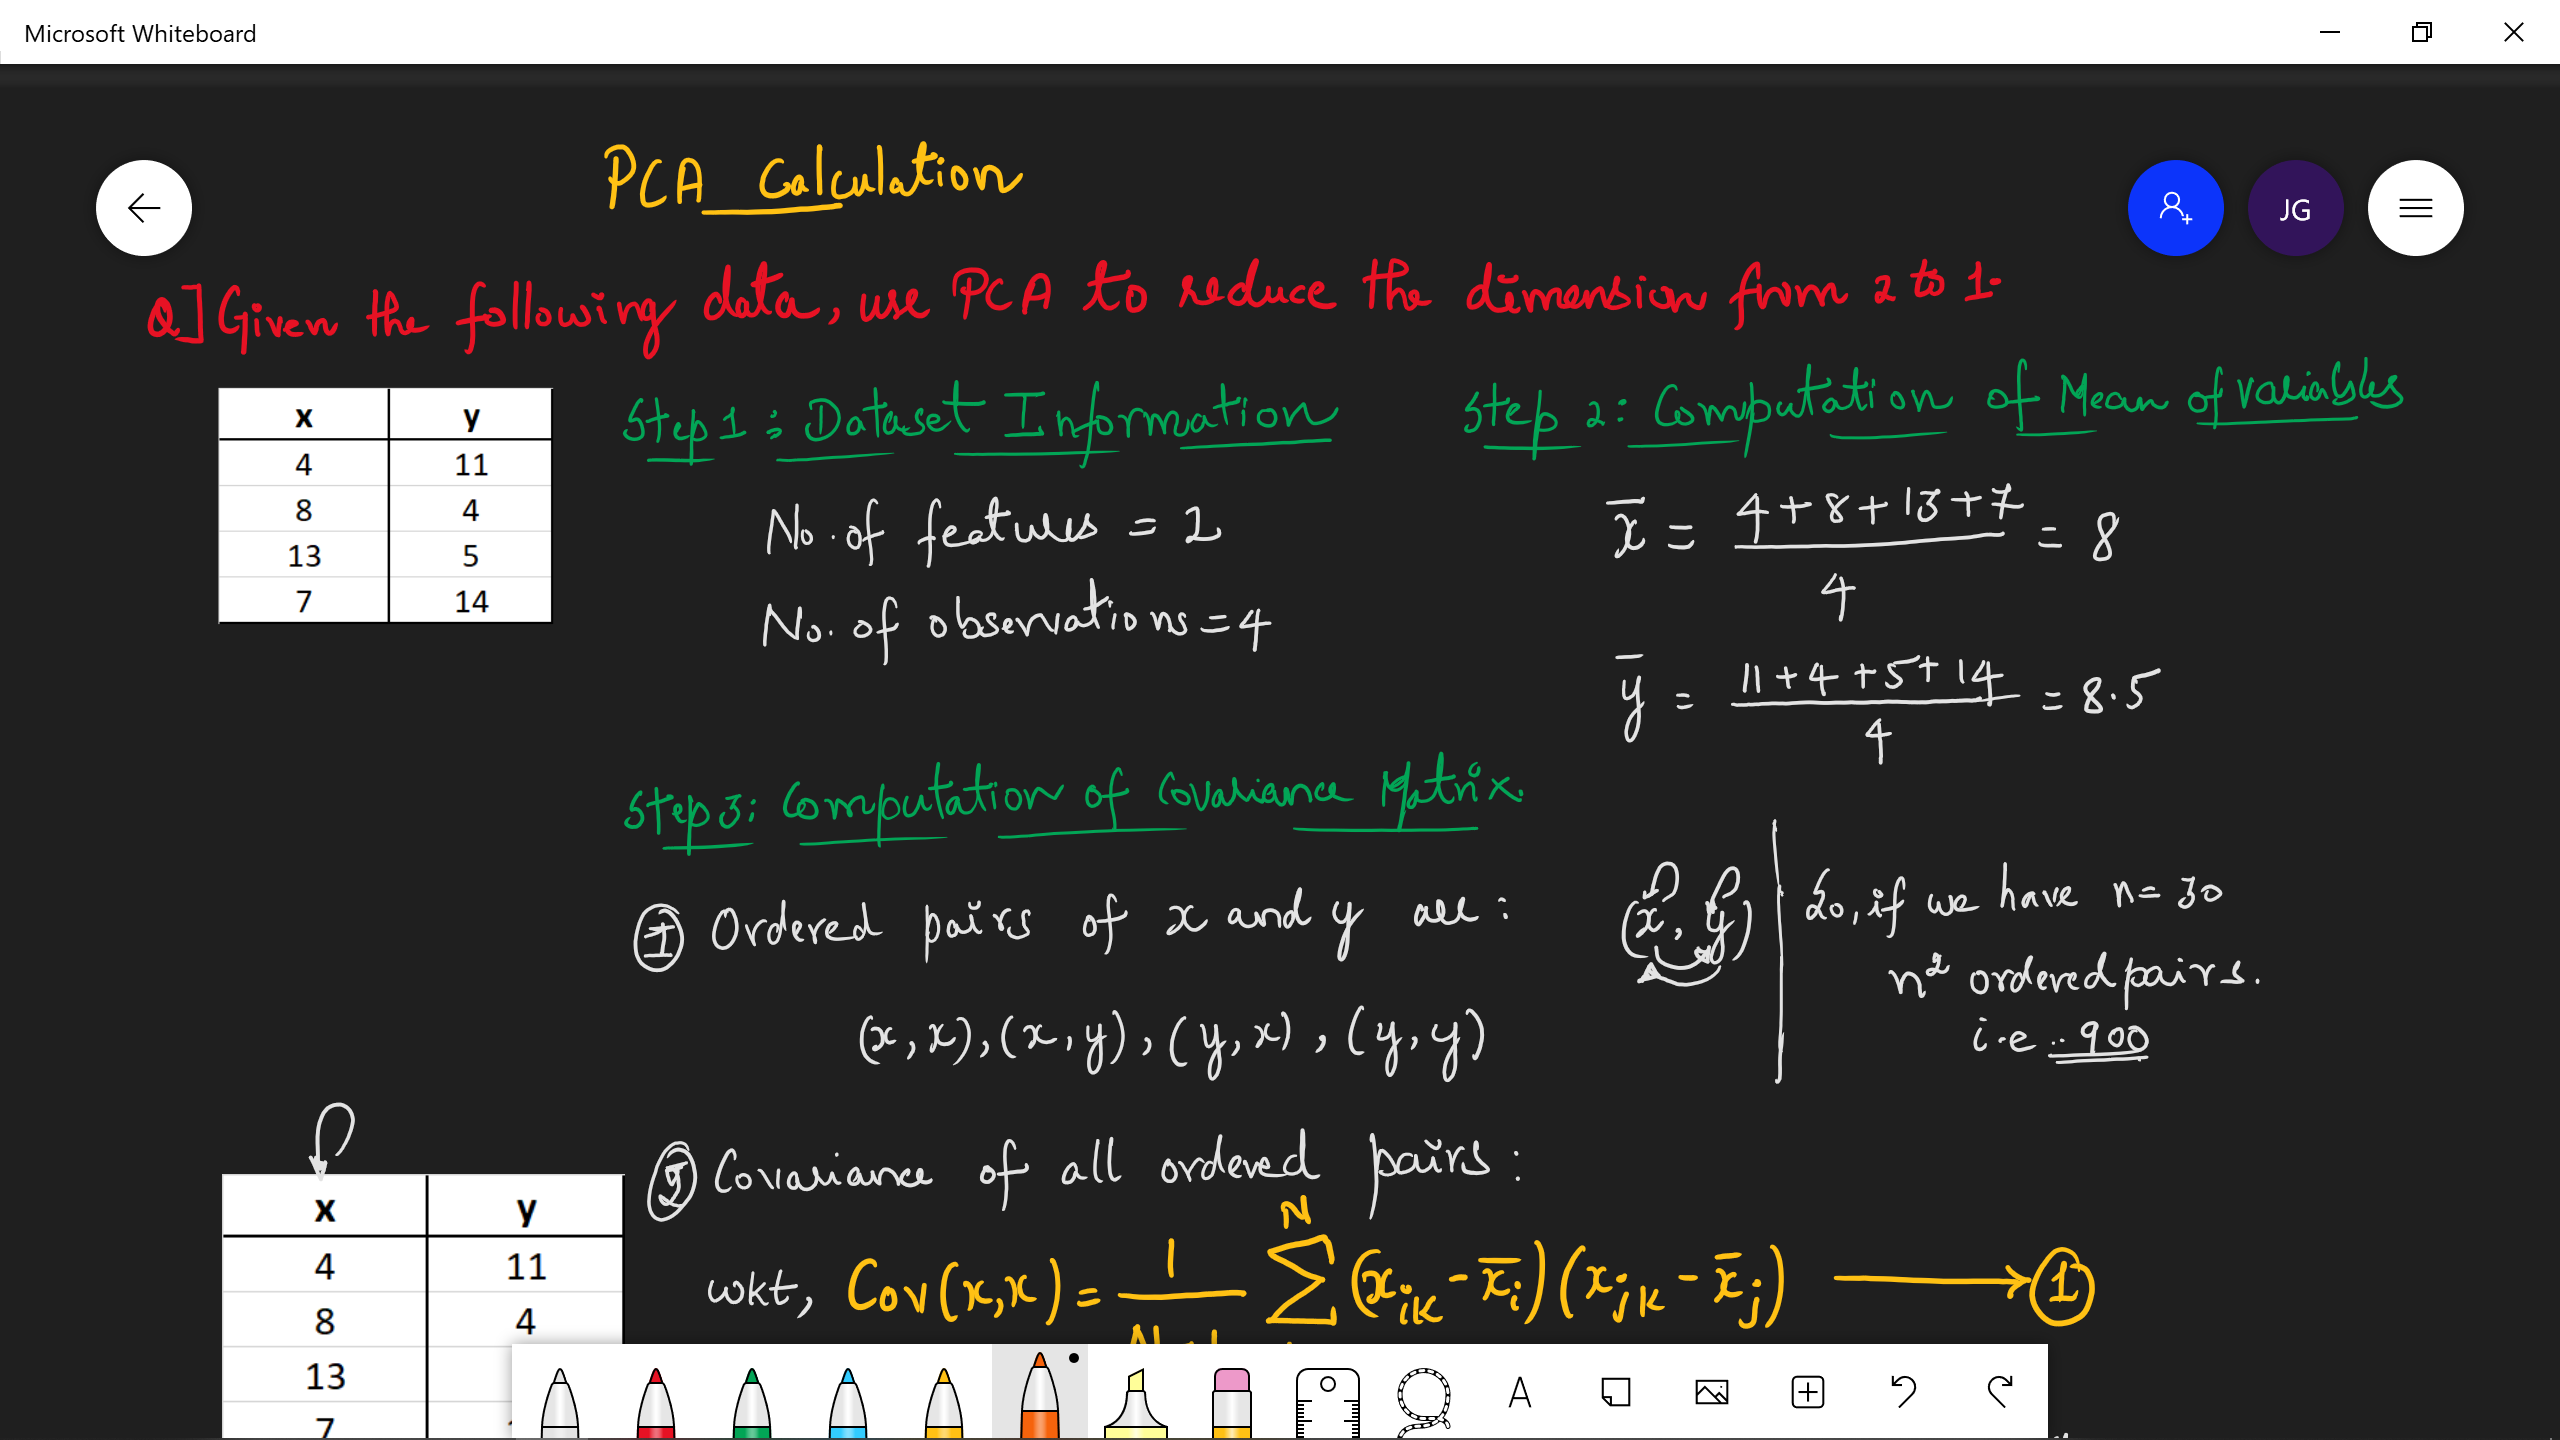 Microsoft Whiteboard
PCA Calculation
JG
Q] Given the following data, use PCA to reduce the dimension from 2 to 1.
x y
4 11
8 4
13 5
7 14
Step 1: Dataset Information
No. of features = 2
No. of observations = 4
Step 2: Computation of Mean of variables
x̄ = 4+8+13+7 / 4 = 8
ȳ = 11+4+5+14 / 4 = 8.5
Step 3: Computation of Covariance Matrix.
① Ordered pairs of x and y are:
(x, y)
So, if we have n = 30
n² ordered pairs.
i.e .. 900
(x,x), (x,y), (y,x), (y,y)
② Covariance of all ordered pairs:
wkt, Cov(x,x) = 1 / N-1 N ∑ (xᵢₖ - x̄ᵢ)(xⱼₖ - x̄ⱼ) → ①
x y
4 11
8 4
13
7
A